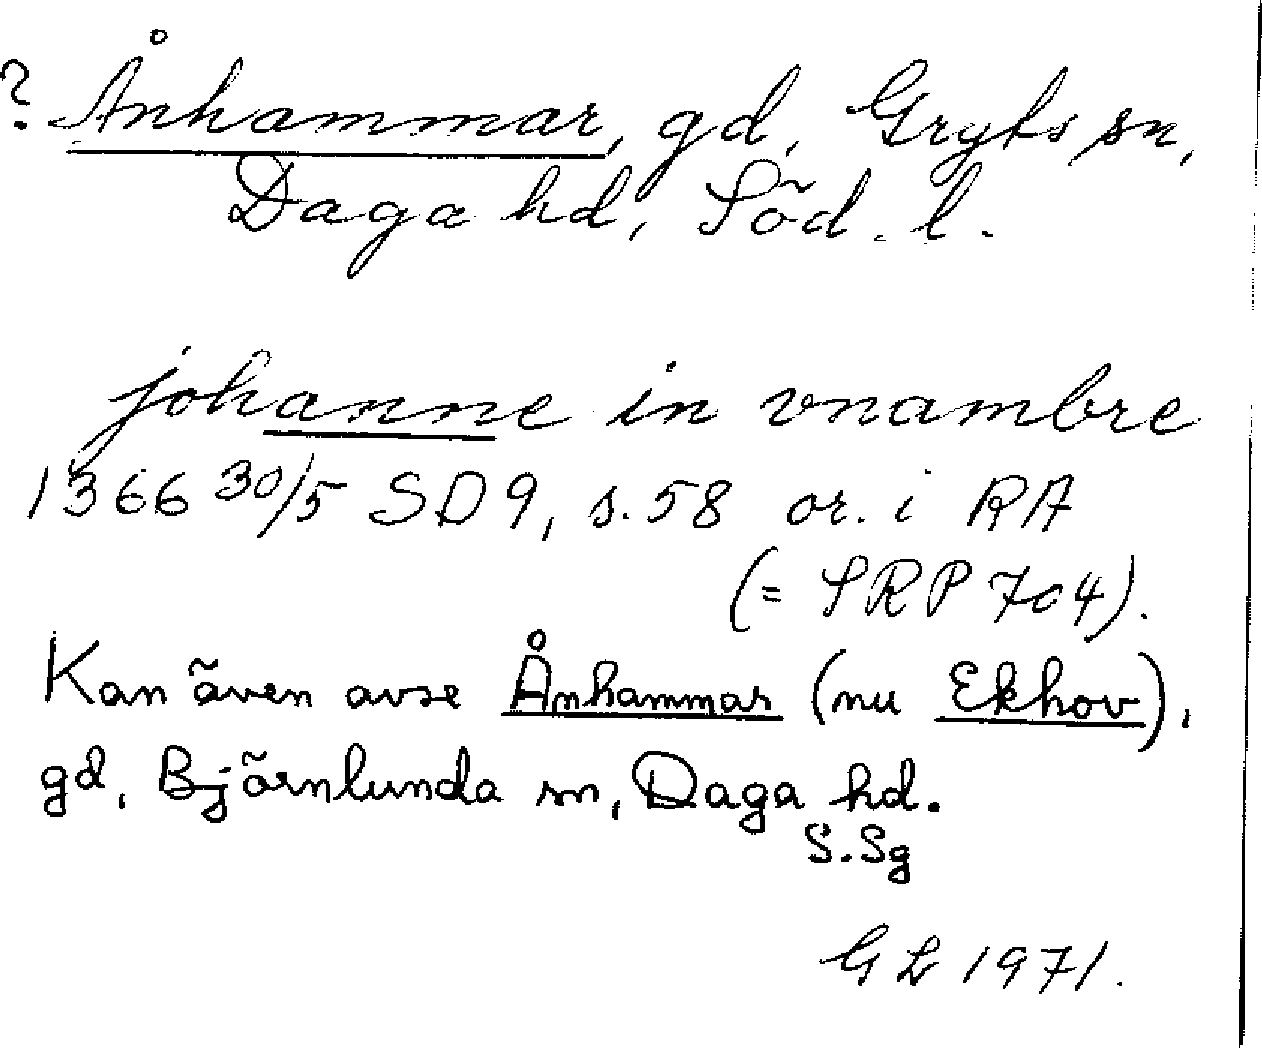 ? Ånhammar, gd, Gryts sn,
Daga hd, Söd. l.
johanne in vnambre
1366 30/5 SD 9, s. 58 or. i RA
(= SRP 704).
Kan även avse Ånhammar (nu Ekhov),
gd, Björnlunda sn, Daga hd.
S.Sg
GL 1971.